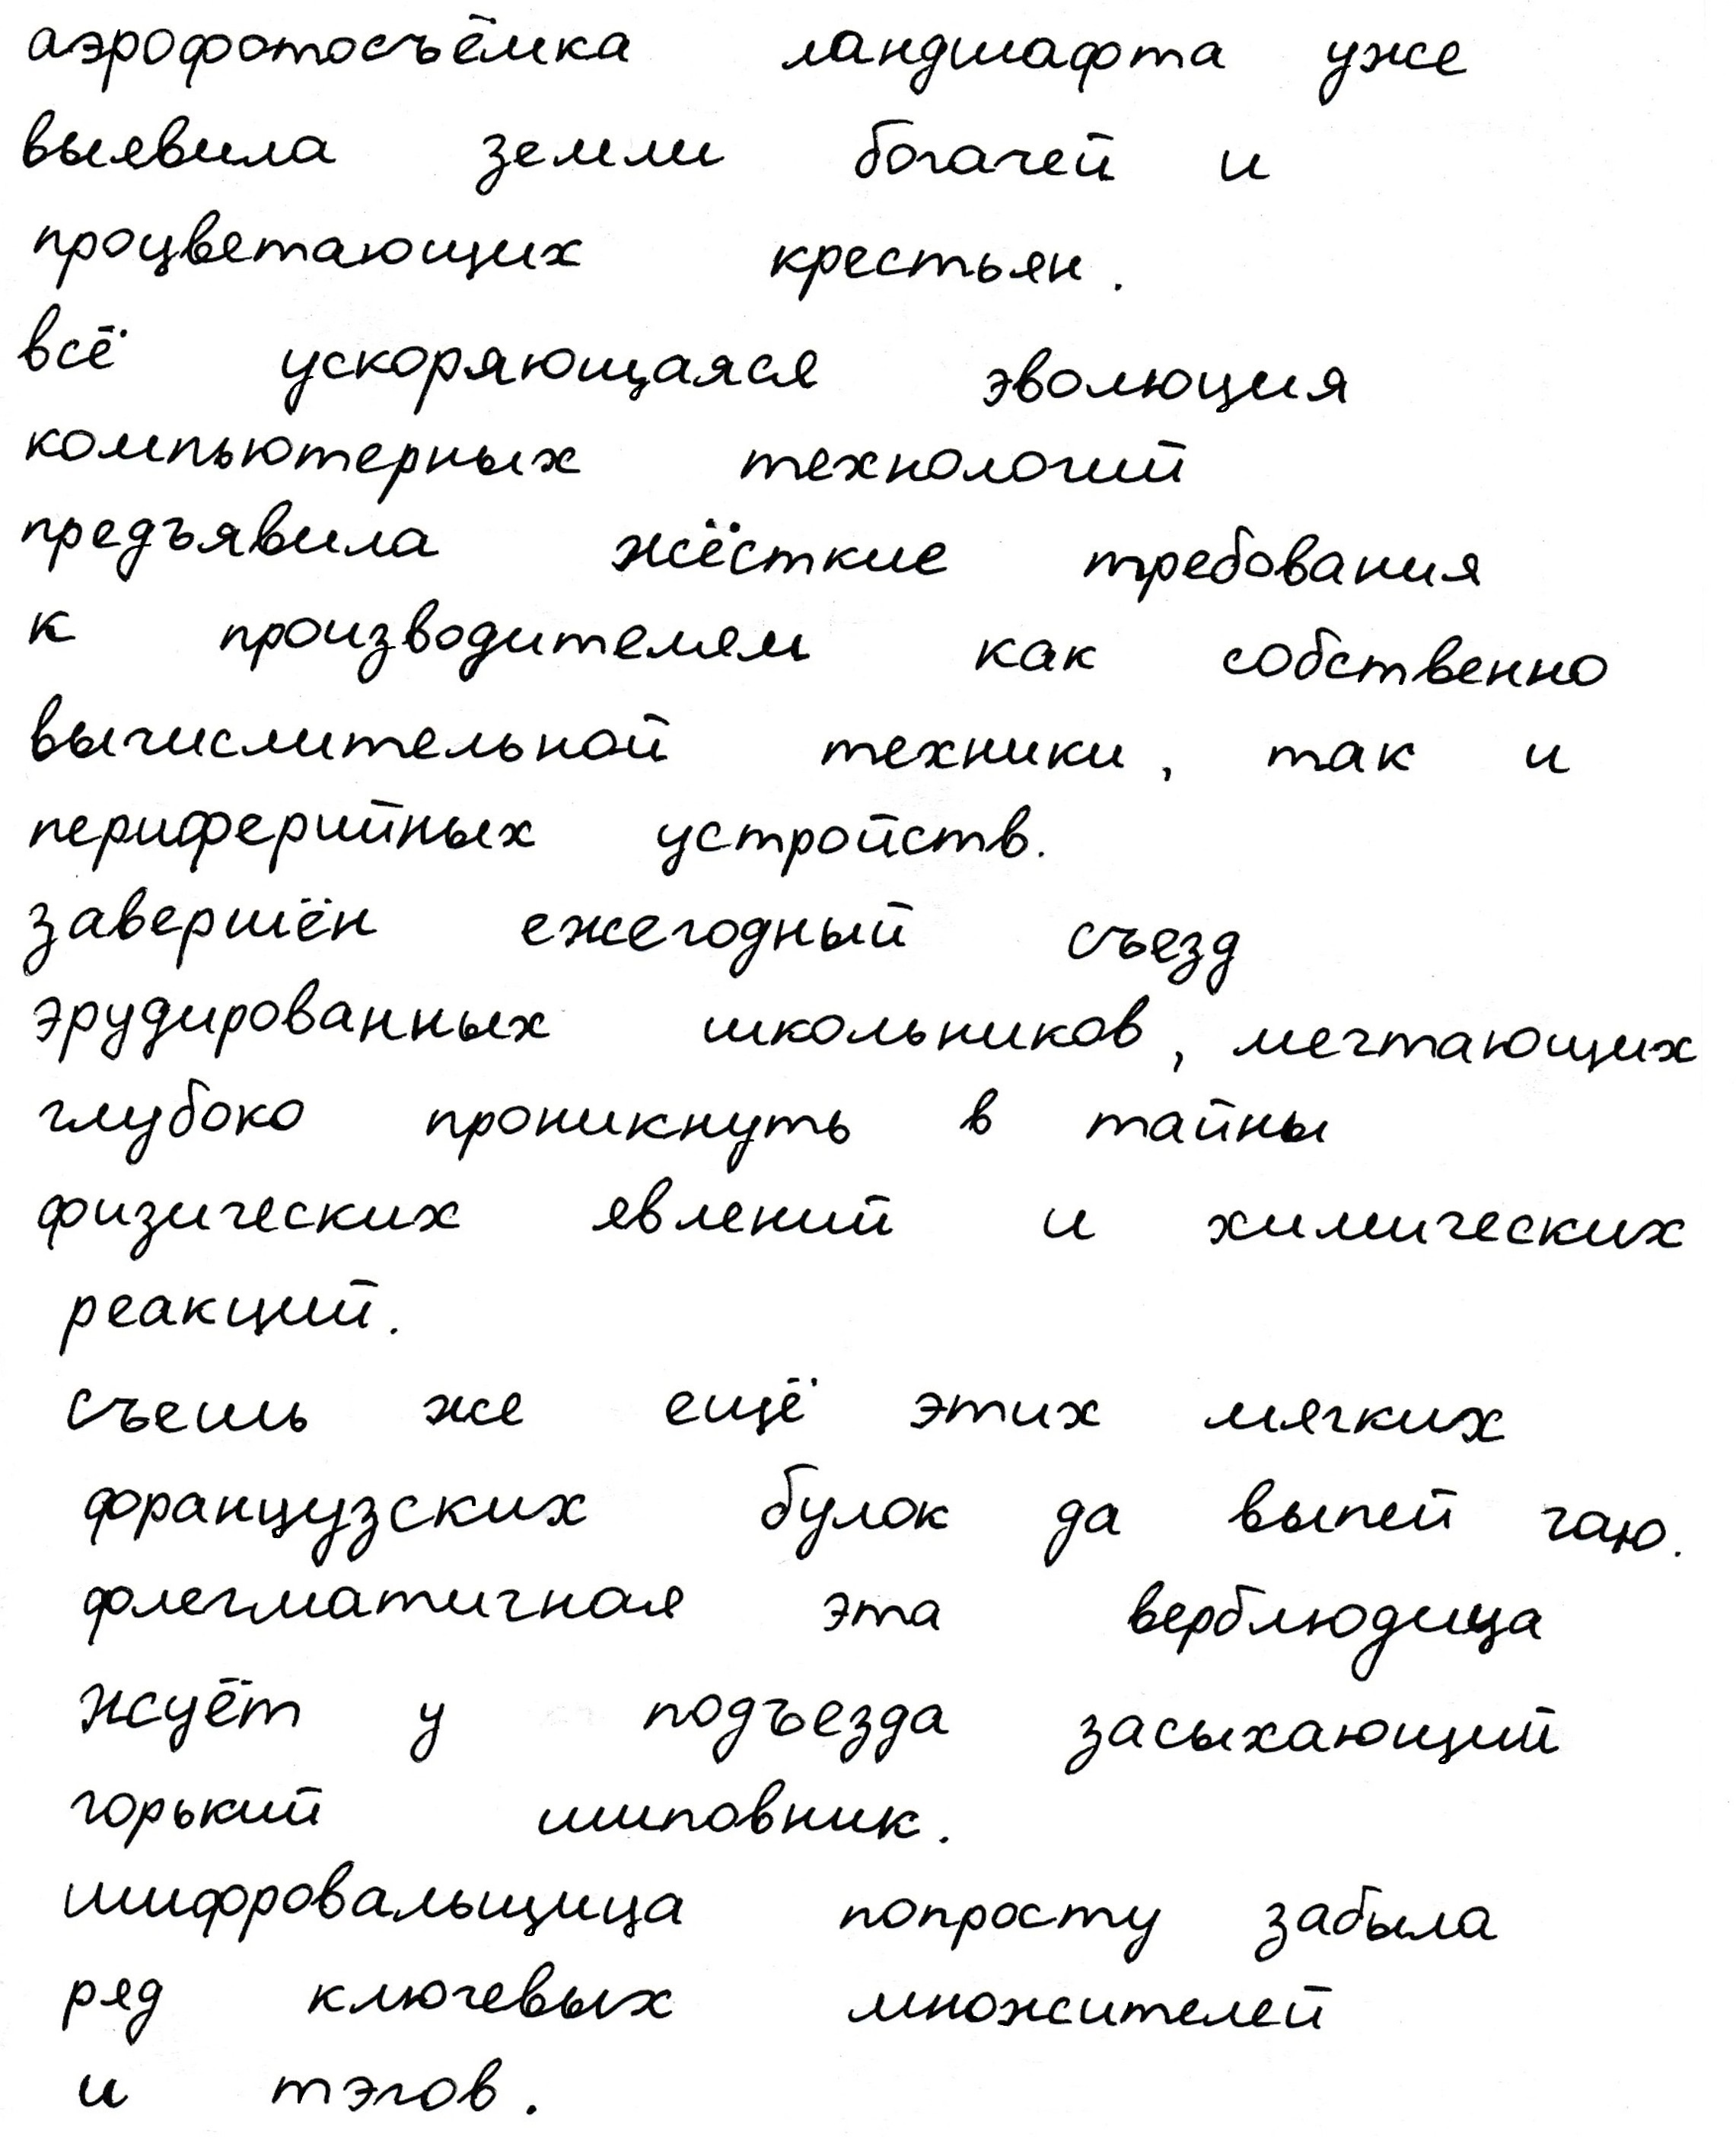 аэрофотосъёмка ландшафта уже
выявила земли богачей и
процветающих крестьян.
всё ускоряющаяся эволюция
компьютерных технологий
предъявила жёсткие требования
к производителям как собственно
вычислительной техники, так и
периферийных устройств.
завершён ежегодный съезд
эрудированных школьников, мечтающих
глубоко проникнуть в тайны
физических явлений и химических
реакций.
съешь же ещё этих мягких
французских булок да выпей чаю.
флегматичная эта верблюдица
жуёт у подъезда засыхающий
горький шиповник.
шифровальщица попросту забыла
ряд ключевых множителей
и тэгов.